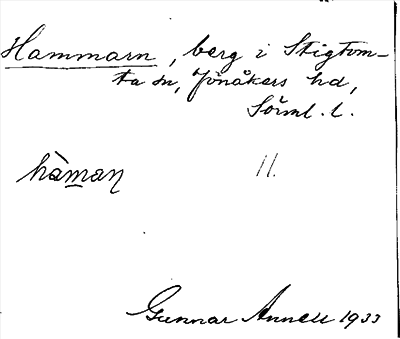 Hammarn, berg i Stigtom-
ta sn, Jönåkers hd,
Sörml. l.
hàmaꞃ 11.
Gunnar Annell 1933